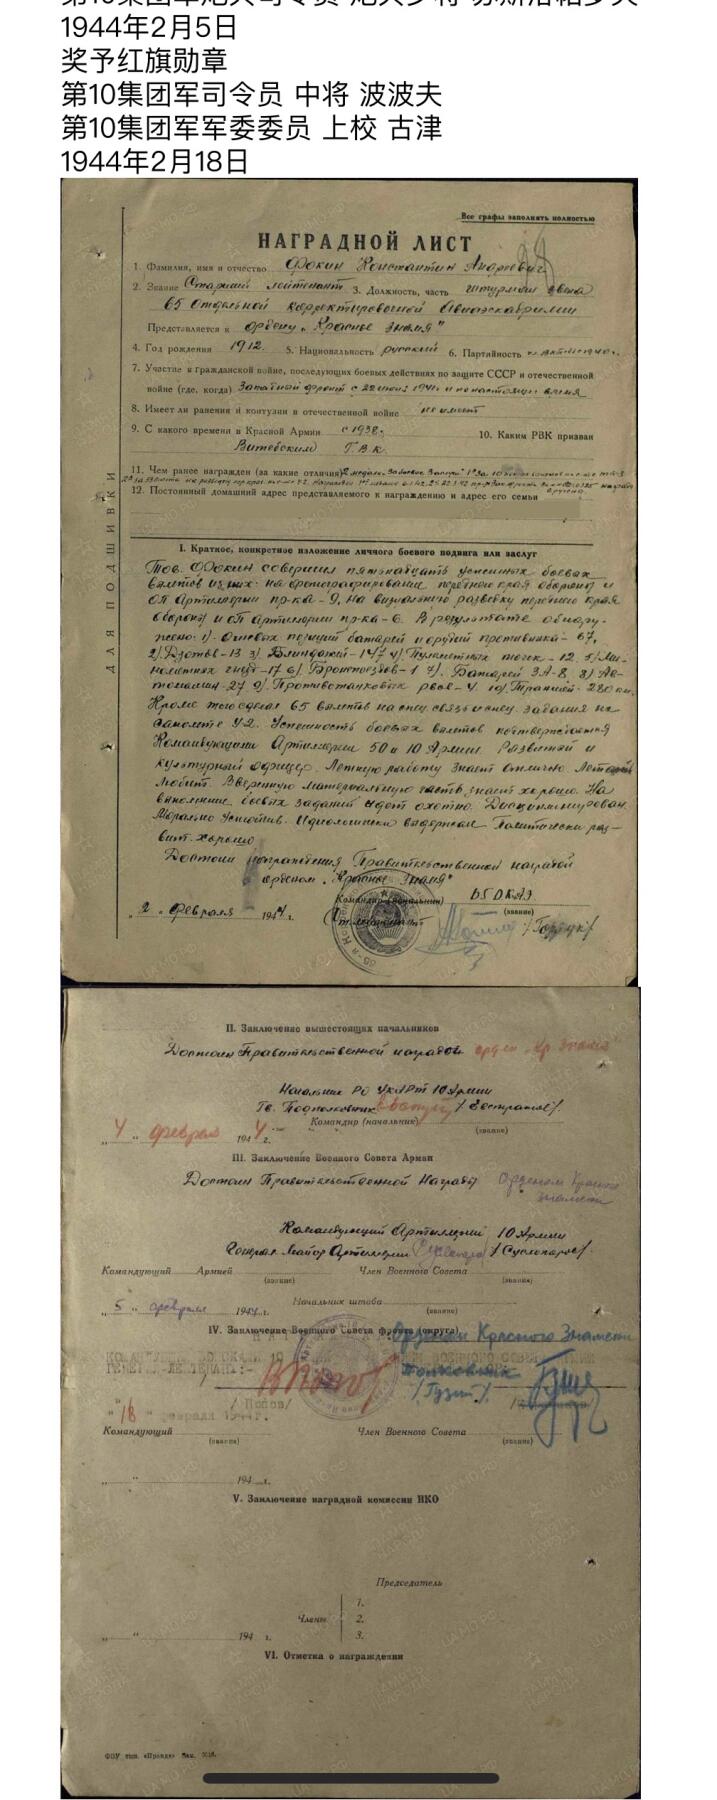 1944年2月5日
奖予红旗勋章
第10集团军司令员 中将 波波夫
第10集团军军委委员 上校 古津
1944年2月18日
Все графы заполнять полностью
НАГРАДНОЙ ЛИСТ
1. Фамилия, имя и отчество Фокин Константин Андреевич
2. Звание Старший лейтенант 3. Должность, часть штурман звена
65 Отдельной корректировочной Авиаэскадрилии
Представляется к ордену „Красное Знамя"
4. Год рождения 1912. 5. Национальность русский 6. Партийность
7. Участие в гражданской войне, последующих боевых действиях по защите СССР и отечественной
войне (где, когда) Западный фронт с 22 июня 1941 и по настоящее время
8. Имеет ли ранения и контузии в отечественной войне не имеет
9. С какого времени в Красной Армии с 1938. 10. Каким РВК призван
Витебским Г.В.К.
11. Чем ранее награжден (за какие отличия) 2 медали „За боевые Заслуги"
12. Постоянный домашний адрес представляемого к награждению и адрес его семьи
ДЛЯ ПОДШИВКИ
I. Краткое, конкретное изложение личного боевого подвига или заслуг
Тов. Фокин совершил пятнадцать успешных боевых
вылетов из них: на фотографирование переднего края обороны и
ОП Артиллерии пр-ка – 9, на визуальную разведку переднего края
обороны и ОП артиллерии пр-ка – 6. В результате обнару-
жено: 1). Огневых позиций батарей и орудий противника – 67,
2) Дзотов – 13 3) Блиндажей – 147 4) Пулеметных точек – 12. 5) Ми-
нометных гнезд – 17 6) Бронепоездов – 1 7). Батарей ЗА – 8, 8) Ав-
томашин – 27 9) Противотанковых рвов – 4 10) Траншей – 280 км.
Кроме того сделал 65 вылетов на спец. связь и спец. задания на
самолете У-2. Успешность боевых вылетов подтверждается
Командующими Артиллерии 50 и 10 Армии. Развитый и
культурный офицер. Летную работу знает отлично. Летать
любит. Вверенную материальную часть знает хорошо. На
выполнение боевых заданий идет охотно. Дисциплинирован.
Морально устойчив. Идеологически выдержан. Политически раз-
вит хорошо
Достоин награждения Правительственной наградой
орденом „Красное Знамя"
Командир (начальник) 65 ОКАЭ
„2„ Февраля 1944 г. (звание)
II. Заключение вышестоящих начальников
Достоин Правительственной награды орден „Кр. Знамя"
Начальник РО УкАрт 10 Армии
Гв. Подполковник /Евстратов/
Командир (начальник) (звание)
„4„ февраля 1944 г.
III. Заключение Военного Совета Армии
Достоин Правительственной Награды Орденом Красного
Знамени
Командующий Артиллерией 10 Армии
Генерал Майор Артиллерии /Суслопаров/
Командующий Армией Член Военного Совета
(звание) (звание)
Начальник штаба
„5„ февраля 1944 г. (звание)
IV. Заключение Военного Совета фронта (округа) Орденом Красного Знамени
ГЕНЕРАЛ-ЛЕЙТЕНАНТ:- полковник
/Попов/ /Гузин/.
„18„ февраля 1944 г.
Командующий Член Военного Совета
(звание) (звание)
„ „ 194 г.
V. Заключение наградной комиссии НКО
Председатель
1.
Члены 2.
3.
„ „ 194 г.
VI. Отметка о награждении